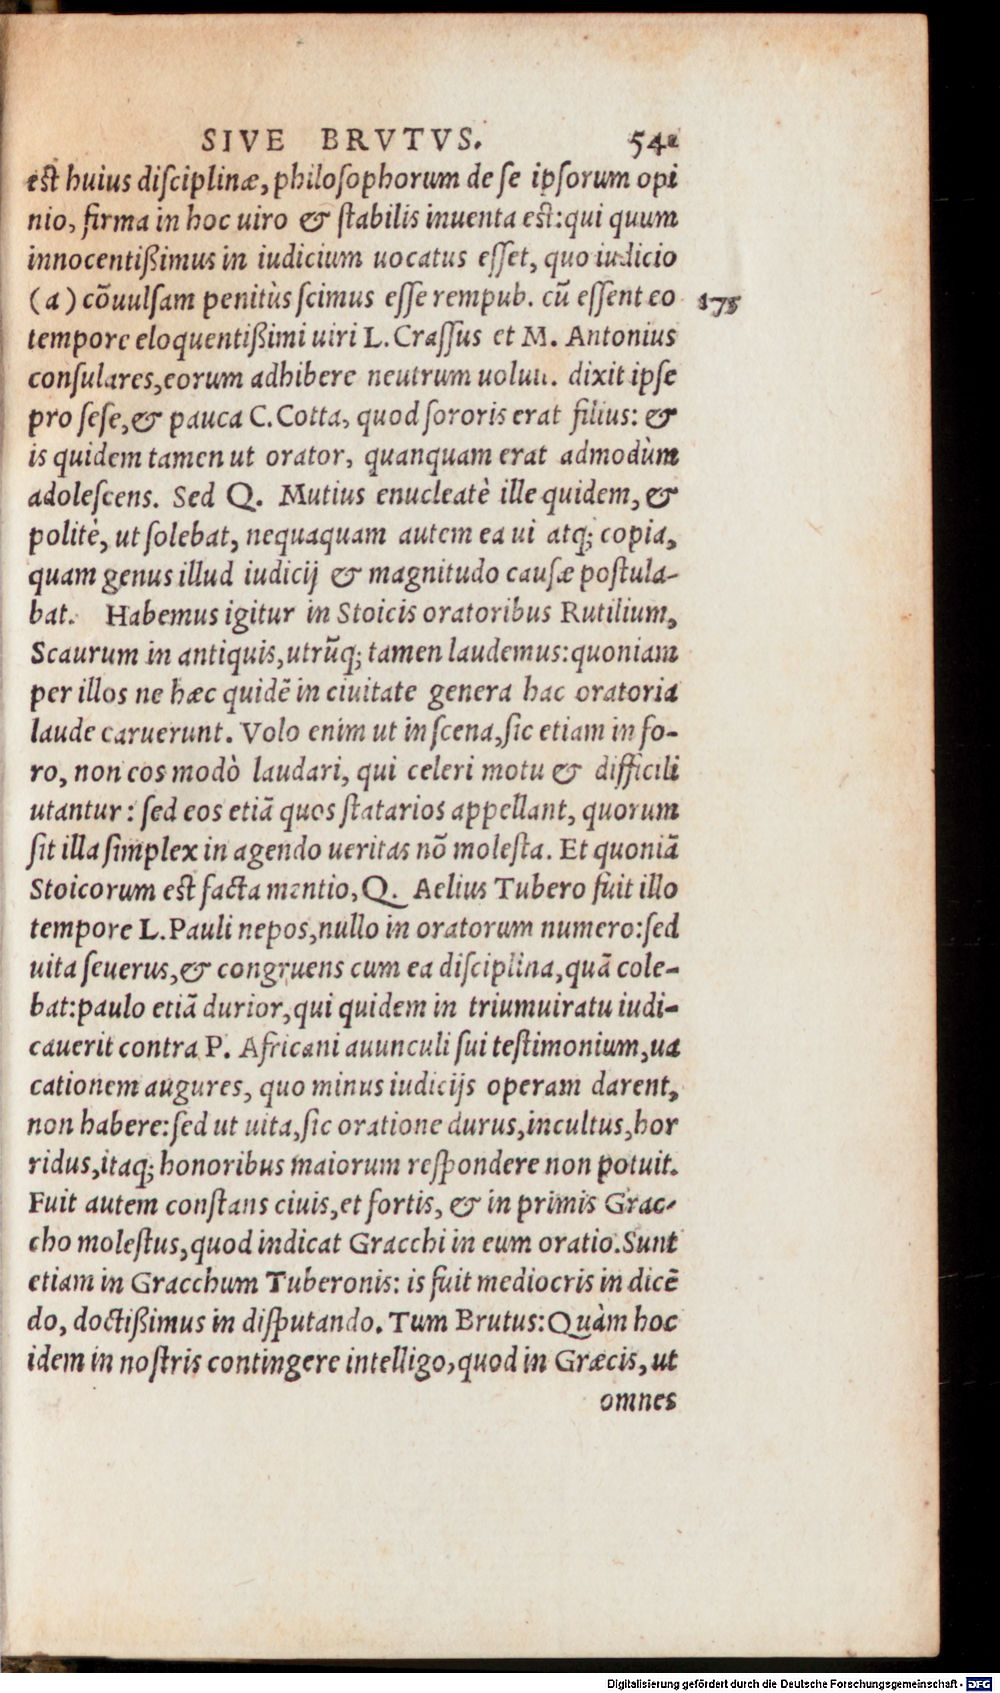 SIVE BRVTVS. 541
est huius disciplinæ, philosophorum de se ipsorum opi
nio, firma in hoc uiro & stabilis inuenta est: qui quum
innocentißimus in iudicium uocatus esset, quo iudicio
(a) cōuulsam penitùs scimus esse rempub. cū essent eo 175
tempore eloquentißimi uiri L. Crassus et M. Antonius
consulares, eorum adhibere neutrum uoluit. dixit ipse
pro sese, & pauca C. Cotta, quod sororis erat filius: &
is quidem tamen ut orator, quanquam erat admodùm
adolescens. Sed Q. Mutius enucleatè ille quidem, &
politè, ut solebat, nequaquam autem ea ui atq; copia,
quam genus illud iudicij & magnitudo causæ postula-
bat. Habemus igitur in Stoicis oratoribus Rutilium,
Scaurum in antiquis, utrūq; tamen laudemus: quoniam
per illos ne hæc quidē in ciuitate genera hac oratoria
laude caruerunt. Volo enim ut in scena, sic etiam in fo-
ro, non eos modò laudari, qui celeri motu & difficili
utantur: sed eos etiā quos statarios appellant, quorum
sit illa simplex in agendo ueritas nō molesta. Et quoniā
Stoicorum est facta mentio, Q. Aelius Tubero fuit illo
tempore L. Pauli nepos, nullo in oratorum numero: sed
uita seuerus, & congruens cum ea disciplina, quā cole-
bat: paulo etiā durior, qui quidem in triumuiratu iudi-
cauerit contra P. Africani auunculi sui testimonium, ua
cationem augures, quo minus iudicijs operam darent,
non habere: sed ut uita, sic oratione durus, incultus, hor
ridus, itaq; honoribus maiorum respondere non potuit.
Fuit autem constans ciuis, et fortis, & in primis Grac-
cho molestus, quod indicat Gracchi in eum oratio. Sunt
etiam in Gracchum Tuberonis: is fuit mediocris in dicē
do, doctißimus in disputando. Tum Brutus: Quàm hoc
idem in nostris contingere intelligo, quod in Græcis, ut
omnes
Digitalisierung gefördert durch die Deutsche Forschungsgemeinschaft - DFG